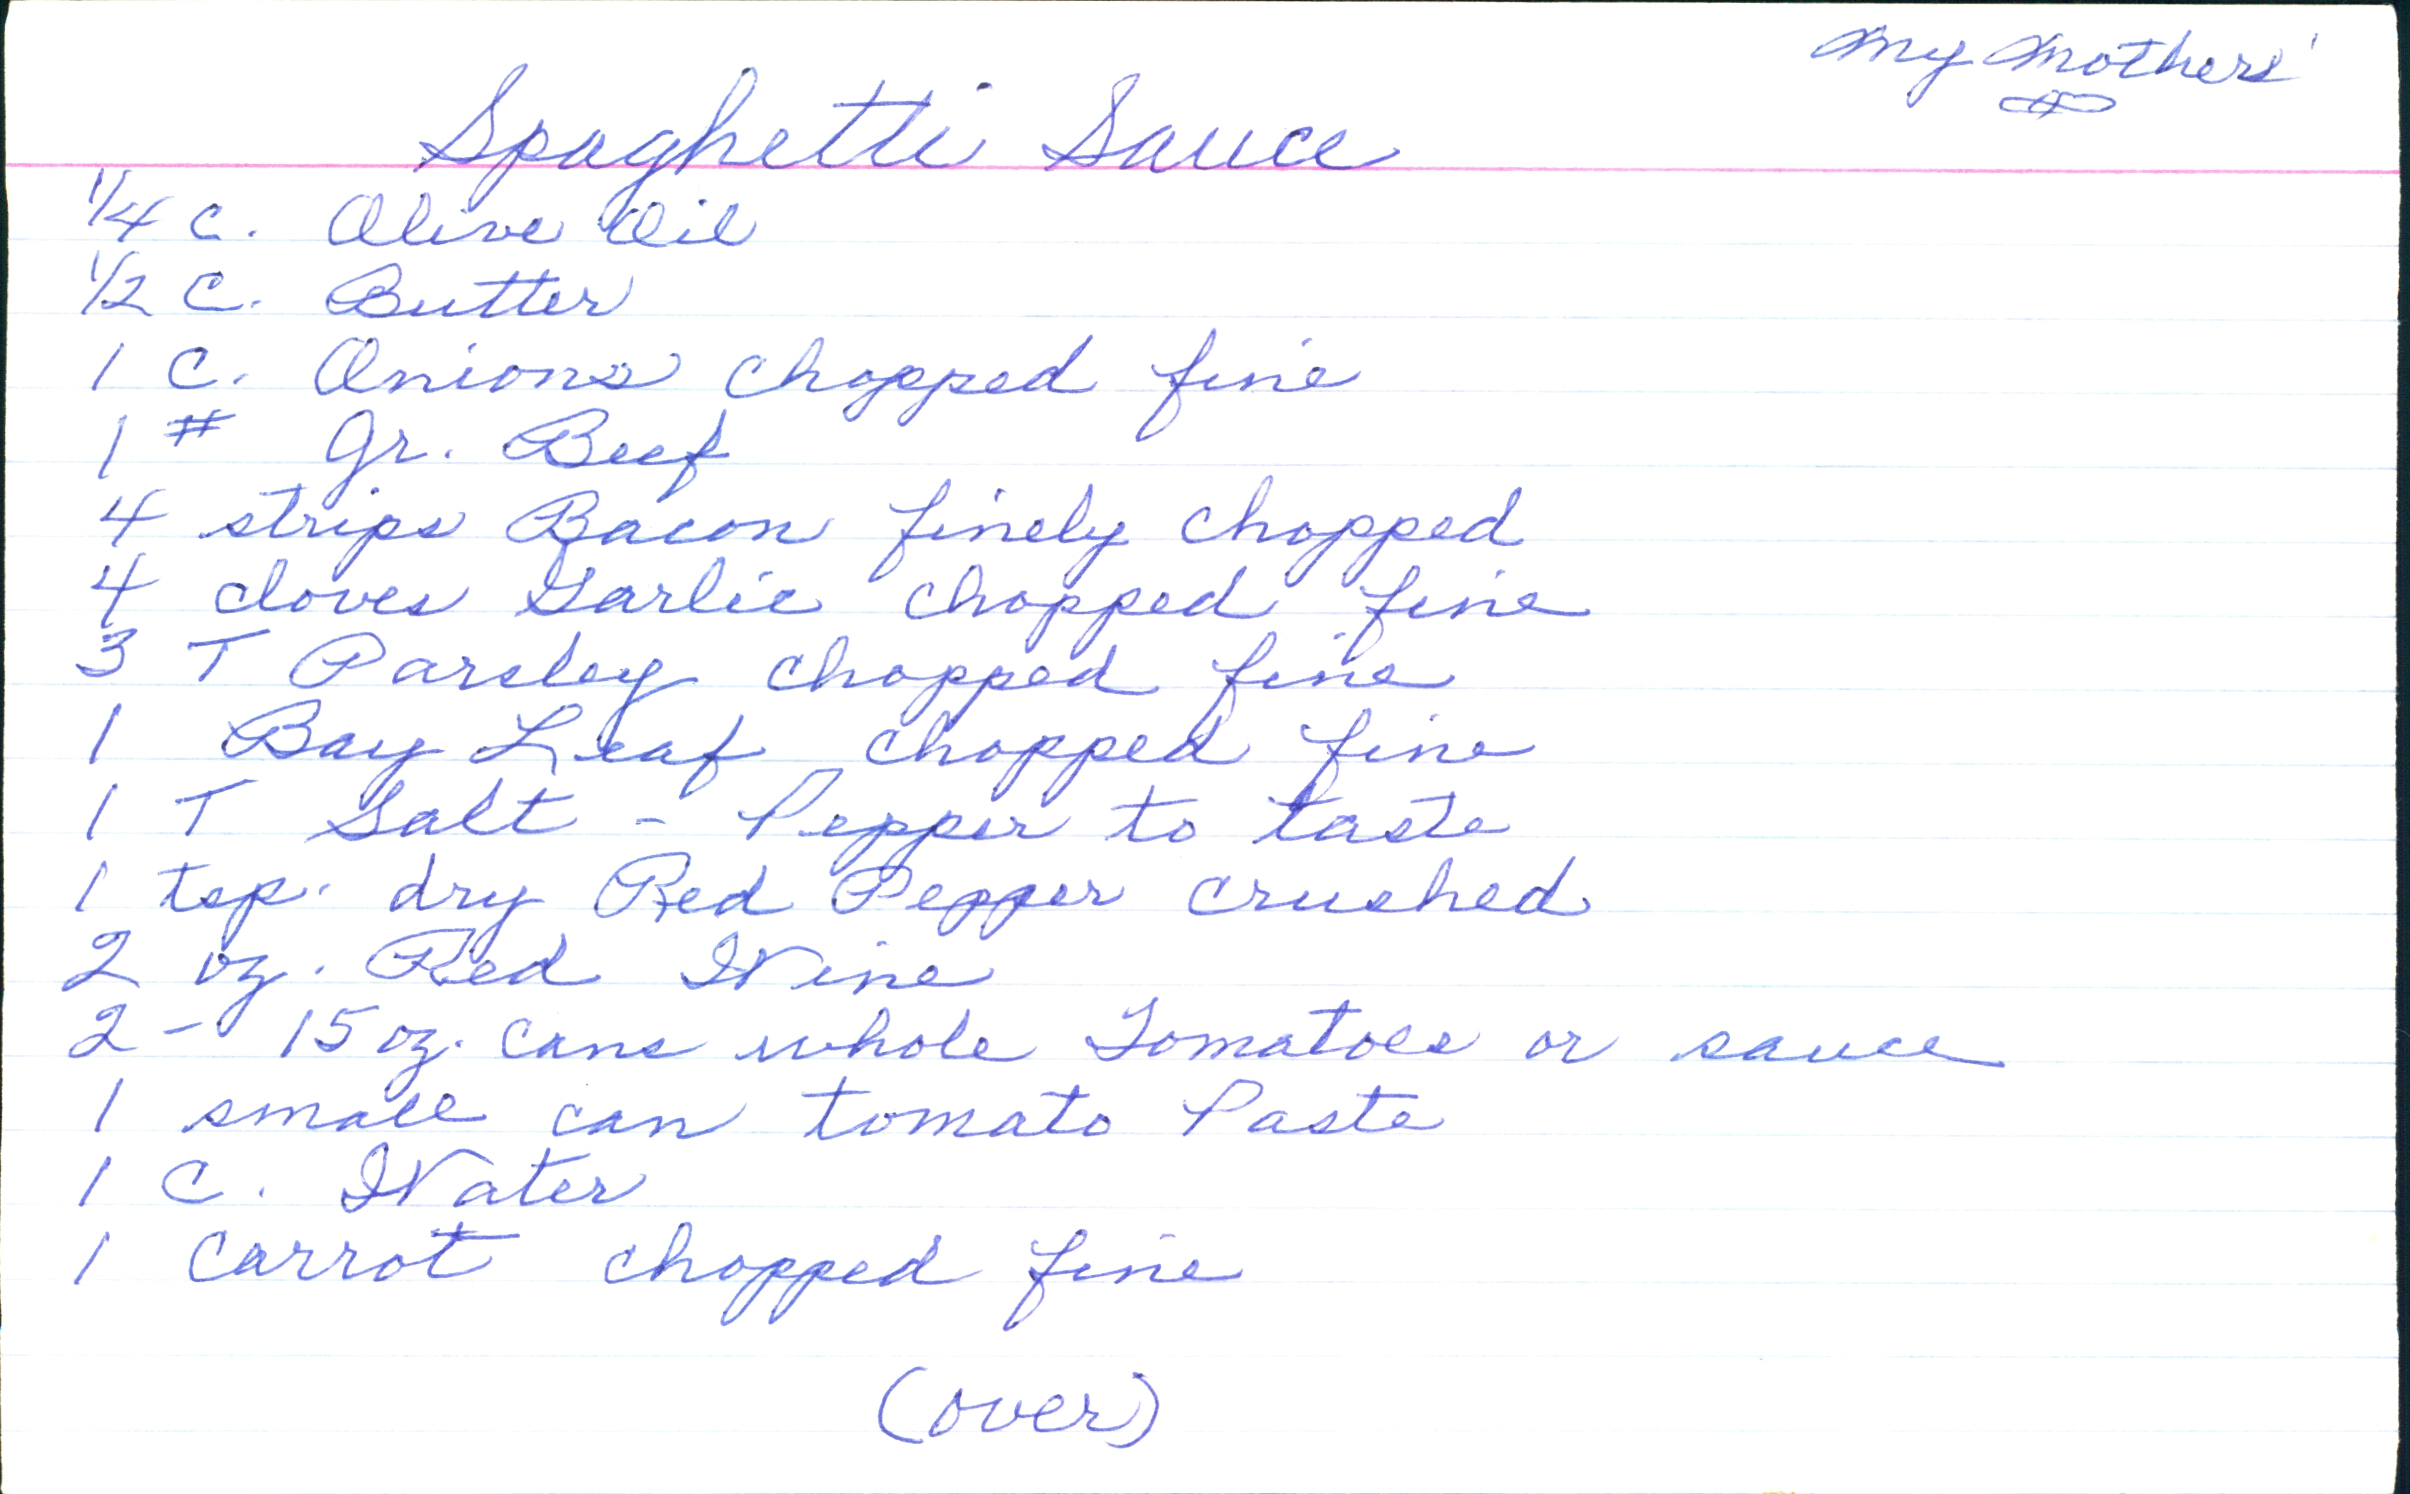 My Mothers'
Spaghetti Sauce
1/4 c. Olive Oil
1/2 c. Butter
1 c. Onions chopped fine
1 # Gr. Beef
4 strips Bacon finely chopped
4 cloves Garlic chopped fine
3 T Parsley chopped fine
1 Bay Leaf chopped fine
1 T Salt - Pepper to taste
1 tsp. dry Red Pepper crushed
2 oz. Red Wine
2 - 15 oz. cans whole Tomatoes or sauce
1 small can tomato Paste
1 c. Water
1 Carrot chopped fine
(over)